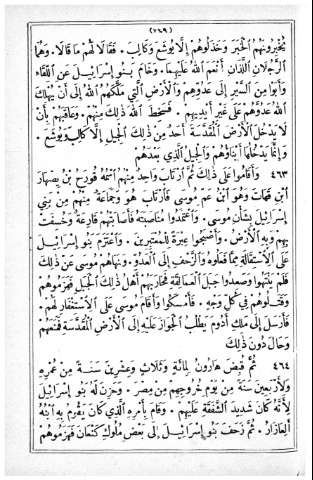 (٢٦٩)
يُخْبِرُونَهُمُ الْخَبَرَ وَخَذَلُوهُمْ إِلَّا يُوشَعَ وَكَالِبَ. فَقَالَا لَهُمْ مَا قَالَا. وَهُمَا
الرَّجُلَانِ اللَّذَانِ أَنْعَمَ اللهُ عَلَيْهِمَا. وَخَامَ بَنُو إِسْرَائِيلَ عَنِ اللِّقَاءِ
وَأَبَوْا مِنَ السَّيْرِ إِلَى عَدُوِّهِمْ وَالْأَرْضِ الَّتِي مَلَّكَهُمُ اللهُ إِلَى أَنْ يُهْلِكَ
اللهُ عَدُوَّهُمْ عَلَى غَيْرِ أَيْدِيهِمْ. فَسَخِطَ اللهُ ذٰلِكَ مِنْهُمْ. وَعَاقَبَهُمْ بِأَنْ
لَا يَدْخُلَ الْأَرْضَ الْمُقَدَّسَةَ أَحَدٌ مِنْ ذٰلِكَ الْجِيلِ إِلَّا كَالِبَ وَيُوشَعَ.
وَإِنَّمَا يَدْخُلُهَا أَبْنَاؤُهُمْ وَالْجِيلُ الَّذِي بَعْدَهُمْ
٤٦٣ وَأَقَامُوا عَلَى ذٰلِكَ ثُمَّ أَرْتَابَ وَاحِدٌ مِنْهُمُ اسْمُهُ قُورَحُ بْنُ يِصْهَارَ
ابْنِ قَهَاتَ وَهُوَ ابْنُ عَمِّ مُوسَى فَارْتَابَ هُوَ وَجَمَاعَةٌ مِنْهُمْ مِنْ بَنِي
إِسْرَائِيلَ بِشَأْنِ مُوسَى. وَاعْتَمَدُوا مُنَاصَبَتَهُ فَأَصَابَتْهُمْ قَارِعَةٌ وَخُسِفَتْ
بِهِمْ وَبِهِ الْأَرْضُ. وَأَصْبَحُوا عِبْرَةً لِلْمُعْتَبِرِينَ. وَاعْتَزَمَ بَنُو إِسْرَائِيلَ
عَلَى الِاسْتِقَالَةِ مِمَّا فَعَلُوهُ وَالزَّحْفِ إِلَى الْعَدُوِّ. وَنَهَاهُمْ مُوسَى عَنْ ذٰلِكَ
فَلَمْ يَنْتَهُوا وَصَعِدُوا جَبَلَ الْعَمَالِقَةِ فَحَارَبَهُمْ أَهْلُ ذٰلِكَ الْجَبَلِ فَهَزَمُوهُمْ
وَقَتَلُوهُمْ فِي كُلِّ وَجْهٍ. فَأَمْسَكُوا وَأَقَامَ مُوسَى عَلَى الِاسْتِغْفَارِ لَهُمْ.
فَأَرْسَلَ إِلَى مَلِكِ أَدُومَ يَطْلُبُ الْجَوَازَ عَلَيْهِ إِلَى الْأَرْضِ الْمُقَدَّسَةِ فَمَنَعَهُمْ
وَحَالَ دُونَ ذٰلِكَ
٤٦٤ ثُمَّ قُبِضَ هَارُونُ لِمِائَةٍ وَثَلَاثٍ وَعِشْرِينَ سَنَةً مِنْ عُمْرِهِ
وَلِأَرْبَعِينَ سَنَةً مِنْ يَوْمِ خُرُوجِهِمْ مِنْ مِصْرَ. وَحَزِنَ لَهُ بَنُو إِسْرَائِيلَ
لِأَنَّهُ كَانَ شَدِيدَ الشَّفَقَةِ عَلَيْهِمْ. وَقَامَ بِأَمْرِهِ الَّذِي كَانَ يَقُومُ بِهِ ابْنُهُ
الْعَازَارُ. ثُمَّ زَحَفَ بَنُو إِسْرَائِيلَ إِلَى بَعْضِ مُلُوكِ كَنْعَانَ فَهَزَمُوهُمْ